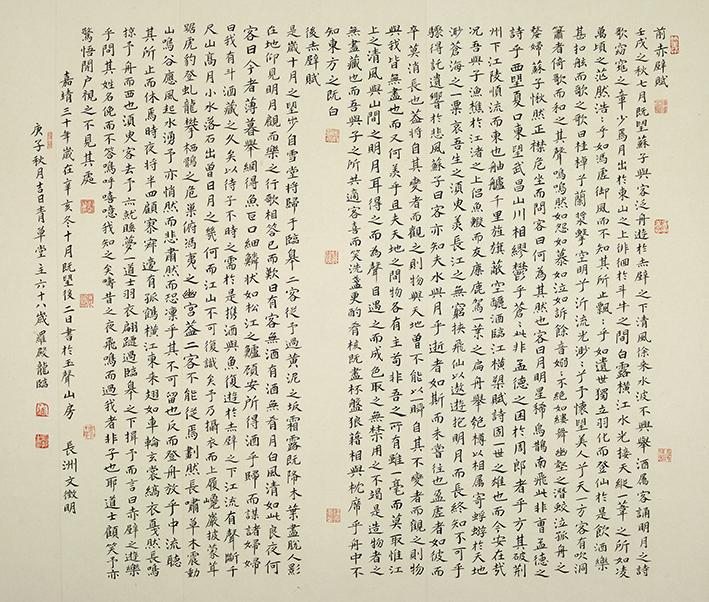 前赤壁賦
壬戌之秋七月既望蘇子與客泛舟遊於赤壁之下清風徐來水波不興舉酒屬客誦明月之詩
歌窈窕之章少焉月出於東山之上徘徊於斗牛之間白露橫江水光接天縱一葦之所如凌
萬頃之茫然浩〻乎如馮虛御風而不知其所止飄〻乎如遺世獨立羽化而登仙於是飲酒樂
甚扣舷而歌之歌曰桂棹兮蘭槳擊空明兮泝流光渺〻兮予懷望美人兮天一方客有吹洞
簫者倚歌而和之其聲嗚嗚然如怨如慕如泣如訴餘音嫋〻不絕如縷舞幽壑之潛蛟泣孤舟之
嫠婦蘇子愀然正襟危坐而問客曰何為其然也客曰月明星稀烏鵲南飛此非曹孟德之
詩乎西望夏口東望武昌山川相繆鬱乎蒼〻此非孟德之困於周郎者乎方其破荊
州下江陵順流而東也舳艫千里旌旗蔽空釃酒臨江橫槊賦詩固一世之雄也而今安在哉
況吾與子漁樵於江渚之上侶魚鰕而友麋鹿駕一葉之扁舟舉匏樽以相屬寄蜉蝣於天地
渺滄海之一粟哀吾生之須臾羨長江之無窮挾飛仙以遨遊抱明月而長終知不可乎
驟得託遺響於悲風蘇子曰客亦知夫水與月乎逝者如斯而未嘗往也盈虛者如彼而
卒莫消長也蓋將自其變者而觀之則物與天地曾不能以瞬自其不變者而觀之則物
與我皆無盡也而又何羨乎且夫天地之間物各有主苟非吾之所有雖一毫而莫取惟江
上之清風與山間之明月耳得之而為聲目遇之而成色取之無禁用之不竭是造物者之
無盡藏也而吾與子之所共適客喜而笑洗盞更酌肴核既盡杯盤狼籍相與枕藉乎舟中不
知東方之既白
後赤壁賦
是歲十月之望步自雪堂將歸于臨皋二客從予過黃泥之坂霜露既降木葉盡脫人影
在地仰見明月顧而樂之行歌相答已而歎曰有客無酒有酒無肴月白風清如此良夜何
客曰今者薄暮舉網得魚巨口細鱗狀如松江之鱸顧安所得酒乎歸而謀諸婦婦
曰我有斗酒藏之久矣以待子不時之需於是攜酒與魚復遊於赤壁之下江流有聲斷岸千
尺山高月小水落石出曾日月之幾何而江山不可復識矣予乃攝衣而上履巉巖披蒙茸
踞虎豹登虬龍攀栖鶻之危巢俯馮夷之幽宮蓋二客不能從焉劃然長嘯草木震動
山鳴谷應風起水湧予亦悄然而悲肅然而恐凜乎其不可留也反而登舟放乎中流聽
其所止而休焉時夜將半四顧寂寥適有孤鶴橫江東來翅如車輪玄裳縞衣戛然長鳴
掠予舟而西也須臾客去予亦就睡夢一道士羽衣翩躚過臨皋之下揖予而言曰赤壁之遊樂
乎問其姓名俛而不答嗚呼噫嘻我知之矣疇昔之夜飛鳴而過我者非子也耶道士顧笑予亦
驚悟開戶視之不見其處
嘉靖三十年歲在辛亥冬十月既望後二日書於玉聲山房 長洲文徵明
庚子秋月吉日青草堂主六十八歲羅殿龍臨